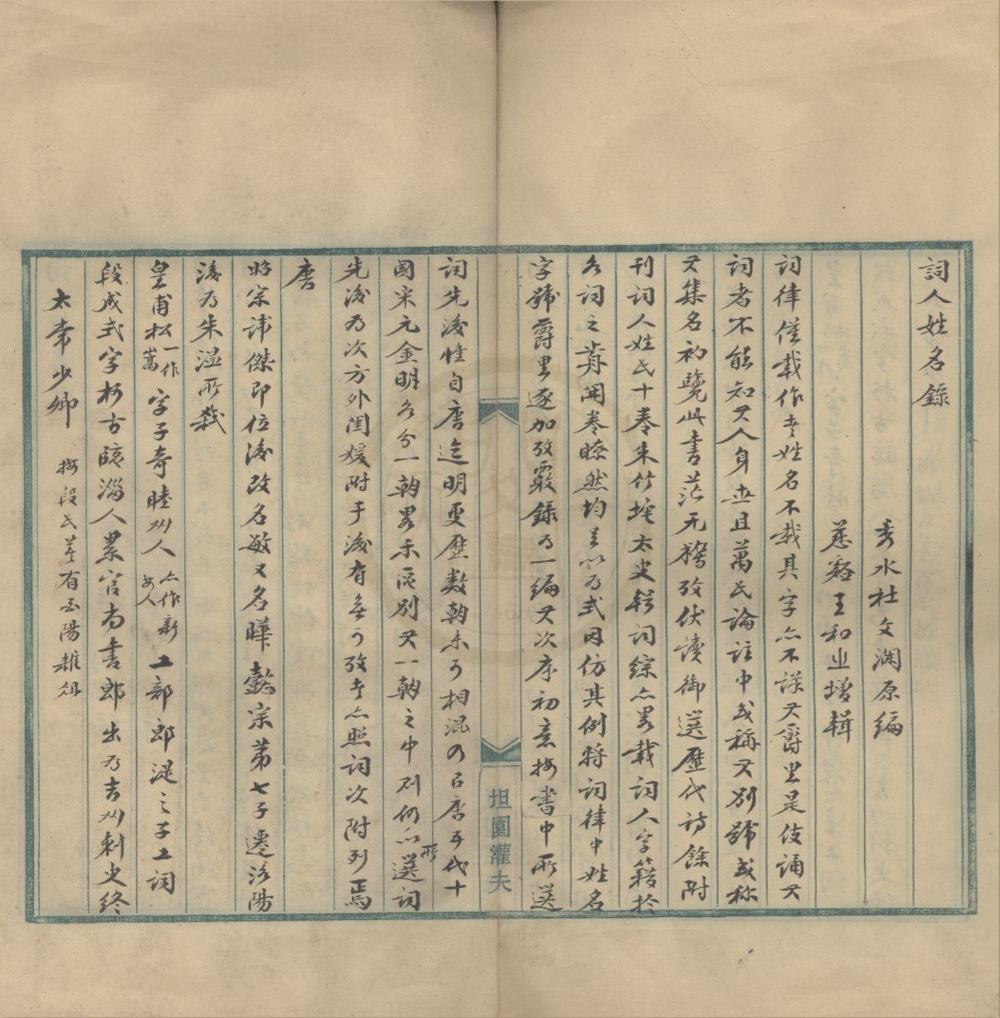 詞人姓名錄
秀水杜文瀾原編
慈谿王和業增輯
詞律僅載作者姓名不載其字亦不詳其爵里是使誦其
詞者不能知其人身世且萬氏論註中或稱其別號或称
其集名初覽此書茫无稽攷伏讀御選歷代詩餘附
刊詞人姓氏十卷朱竹垞太史輯詞綜亦畧載詞人字籍於
各詞之前開卷瞭然均足以為式因仿其例將詞律中姓名
字號爵里逐加攷覈錄為一編其次序初意按書中所選
詞先後惟自唐迄明更歷數朝未可相混乃以唐五代十
國宋元金明各分一朝畧示區別其一朝之中則仍以所選詞
先後為次方外閨媛附于後有無可攷者亦照詞次附列焉
唐
昭宗諱傑即位後改名敏又名曄懿宗第七子遷洛陽
後为朱溫所弑
皇甫松一作嵩字子奇睦州人亦作新安人工部郎湜之子工詞
段成式字柯古臨淄人累官尚書郎出为吉州刺史終
太常少卿 按段氏著有酉陽雜俎
坦園灌夫